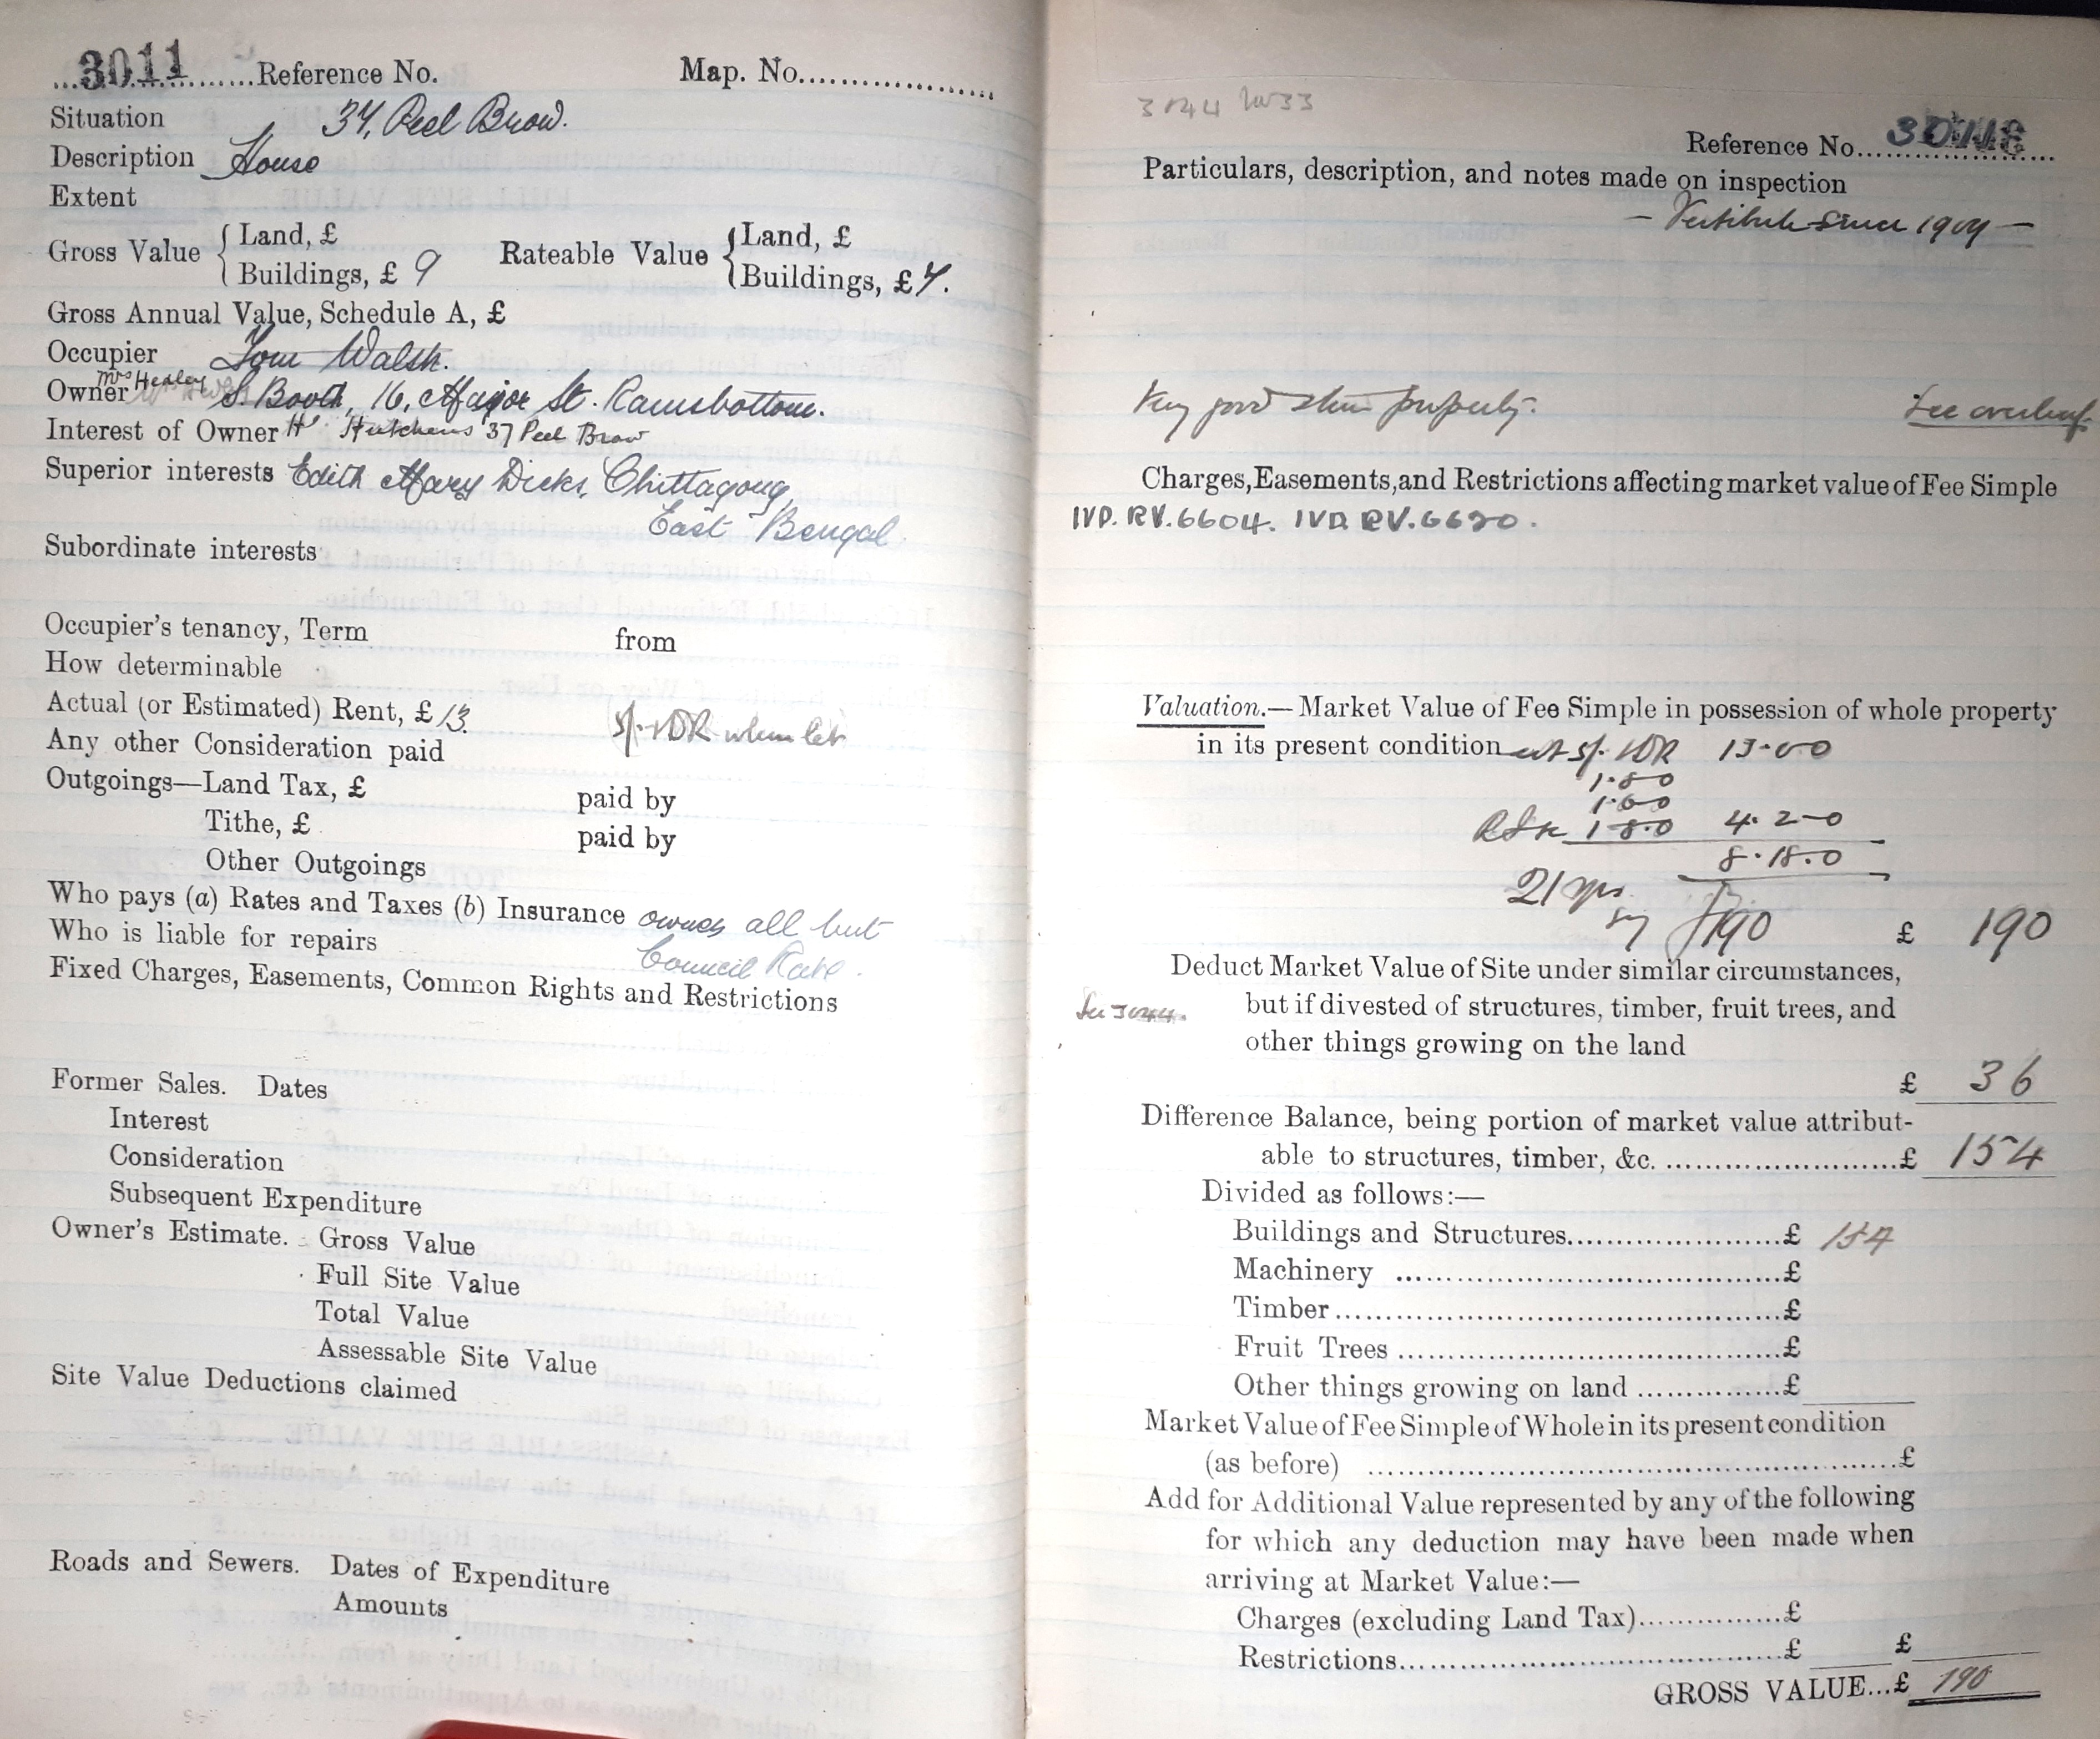 3011 Reference No. Map. No.
Situation 37, Peel Brow.
Description House
Extent
Gross Value { Land, £
Buildings, £ 9
Rateable Value { Land, £
Buildings, £ 7.
Gross Annual Value, Schedule A, £
Occupier Tom Walsh.
Mrs Healey
Owner S. Booth, 16, Major St. Ramsbottom.
Interest of Owner Hy Hutchens 37 Peel Brow
Superior interests Edith Mary Dicks, Chittagong,
East Bengal
Subordinate interests
Occupier's tenancy, Term from
How determinable
Actual (or Estimated) Rent, £ 13.
5/- when let
Any other Consideration paid
Outgoings—Land Tax, £ paid by
Tithe, £ paid by
Other Outgoings
Who pays (a) Rates and Taxes (b) Insurance owner all but
Who is liable for repairs Council Rate.
Fixed Charges, Easements, Common Rights and Restrictions
Former Sales. Dates
Interest
Consideration
Subsequent Expenditure
Owner's Estimate. Gross Value
Full Site Value
Total Value
Assessable Site Value
Site Value Deductions claimed
Roads and Sewers. Dates of Expenditure
Amounts
3044
Reference No.
Particulars, description, and notes made on inspection
— Vestibule since 1909 —
Very good stone property.
See overleaf
Charges, Easements, and Restrictions affecting market value of Fee Simple
IVD. RV. 6604. IVD. RV. 6620.
Valuation.— Market Value of Fee Simple in possession of whole property
in its present condition at 5/- 13-0-0
1.8.0
1.6.0
1-8.0 4.2-0
8.18.0
21 yrs
Sy £190 £ 190
Deduct Market Value of Site under similar circumstances,
See 3044. but if divested of structures, timber, fruit trees, and
other things growing on the land
£ 36
Difference Balance, being portion of market value attribut-
able to structures, timber, &c. £ 154
Divided as follows:—
Buildings and Structures £ 154
Machinery £
Timber £
Fruit Trees £
Other things growing on land £
Market Value of Fee Simple of Whole in its present condition
(as before) £
Add for Additional Value represented by any of the following
for which any deduction may have been made when
arriving at Market Value:—
Charges (excluding Land Tax) £
Restrictions £ £
GROSS VALUE...£ 190